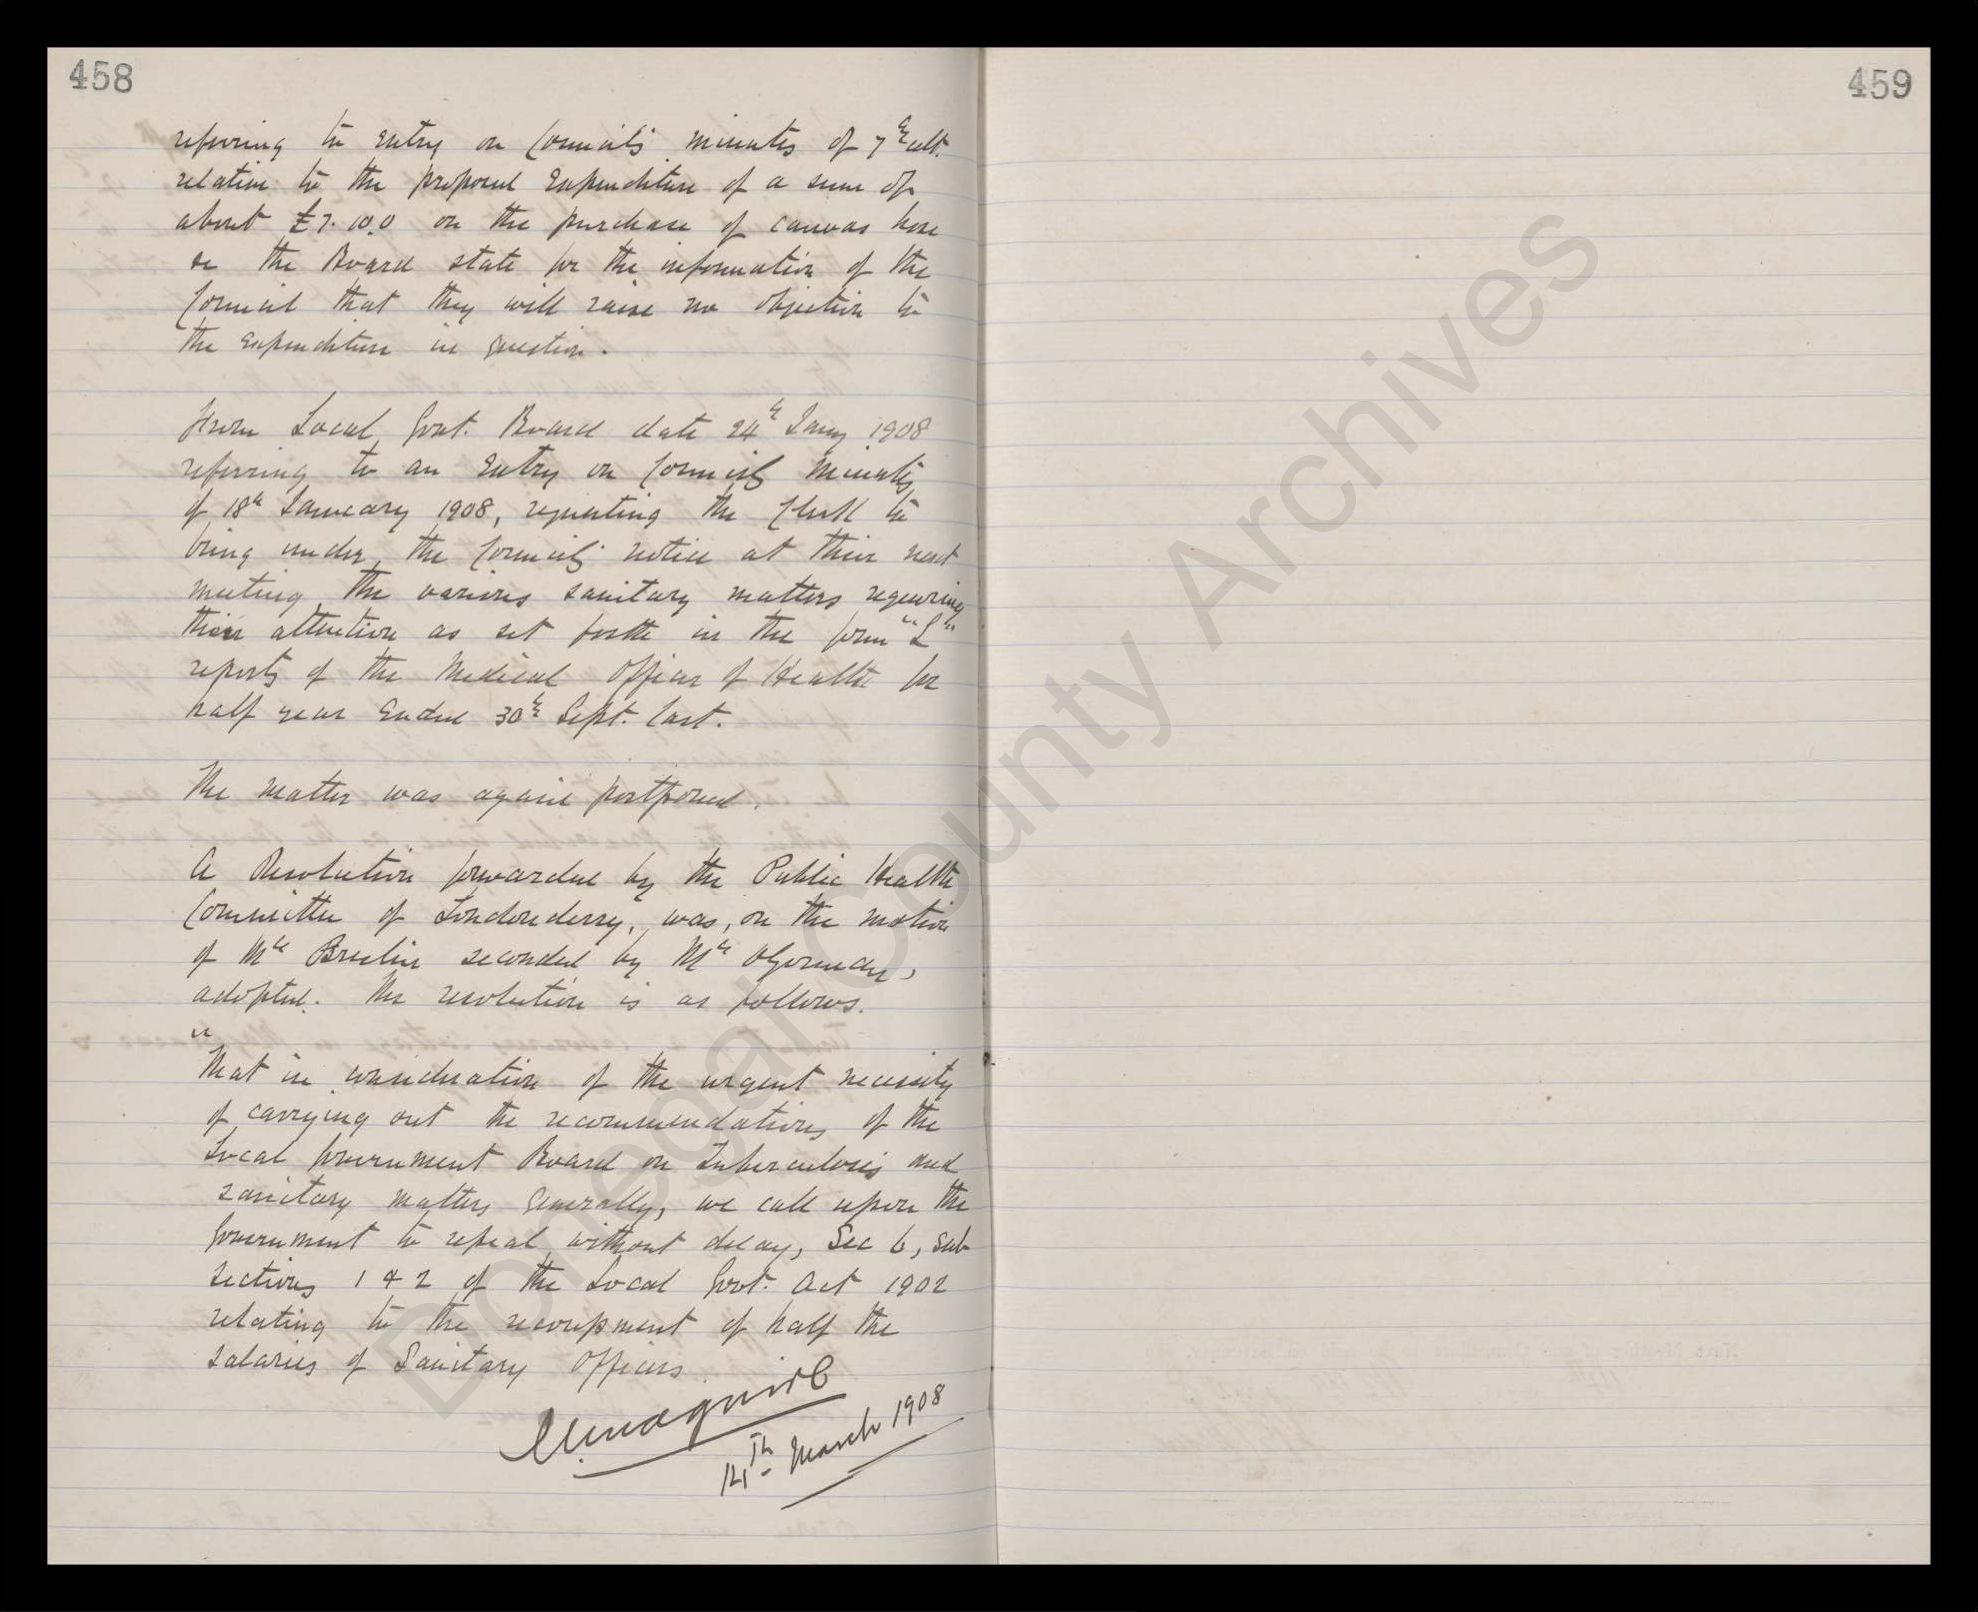 458
referring to Entry on Council's minutes of 7th ult.
relative to the proposed Expenditure of a sum of
about £7.10.0 on the purchase of canvas hose
&c the Board state for the information of the
Council that they will raise no objection to
the expenditure in question.
From Local Govt. Board date 24th Jany 1908
referring to an Entry on Council's Minutes
of 18th January 1908, requesting the Clerk to
bring under the Council's notice at their next
meeting the various sanitary matters requiring
their attention as set forth in the form "L"
reports of the Medical Officer of Health for
half year Ended 30th Sept. last.
The matter was again postponed.
A Resolution forwarded by the Public Health
Committee of Londonderry, was, on the motion
of Mr Breslin seconded by Mr O'Gorman,
adopted. The resolution is as follows.
"
That in consideration of the urgent necessity
of carrying out the recommendations of the
Local Government Board on Tuberculosis and
sanitary matters generally, we call upon the
Government to repeal without delay, Sec 6, sub
sections 1 & 2 of the Local Govt. Act 1902
relating to the recoupment of half the
salaries of Sanitary Officers
Maguire
14th March 1908
459
Donegal County Archives